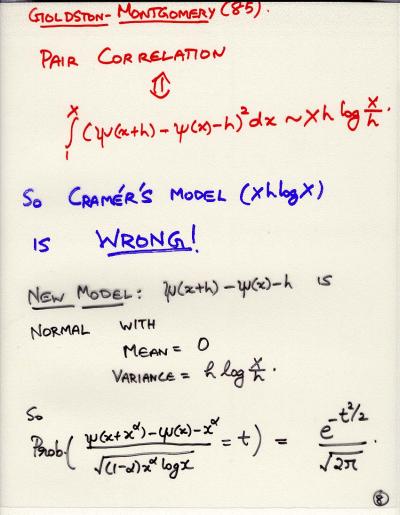 GOLDSTON-MONTGOMERY (85).
PAIR CORRELATION
⇕
∫₁ˣ (ψ(x+h) - ψ(x) - h)² dx ~ X h log X/h.
So CRAMÉR'S MODEL (X h log X)
IS WRONG!
NEW MODEL: ψ(x+h) - ψ(x) - h is
NORMAL WITH
MEAN = 0
VARIANCE = h log x/h.
So
Prob( (ψ(x+x^α) - ψ(x) - x^α) / √((1-α) x^α log x) = t ) = e^(-t²/2) / √(2π) .
8